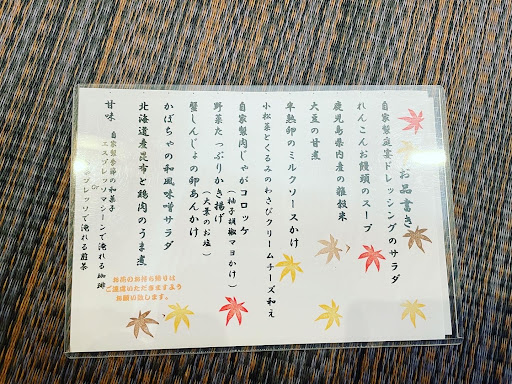 お品書き
自家製庭宴ドレッシングのサラダ
れんこんお饅頭のスープ
鹿児島県内産の雑穀米
大豆の甘煮
半熟卵のミルクソースかけ
小松菜とくるみのわさびクリームチーズ和え
自家製肉じゃがコロッケ
(柚子胡椒マヨかけ)
野菜たっぷりかき揚げ
(大葉のお塩)
蟹しんじょの卵あんかけ
かぼちゃの和風味噌サラダ
北海道産昆布と鶏肉のうま煮
甘味
自家製季節の和菓子
エスプレッソマシーンで淹れる珈琲
or
エスプレッソで淹れる煎茶
お席のお持ち帰りは
ご遠慮いただきますよう
お願い致します。